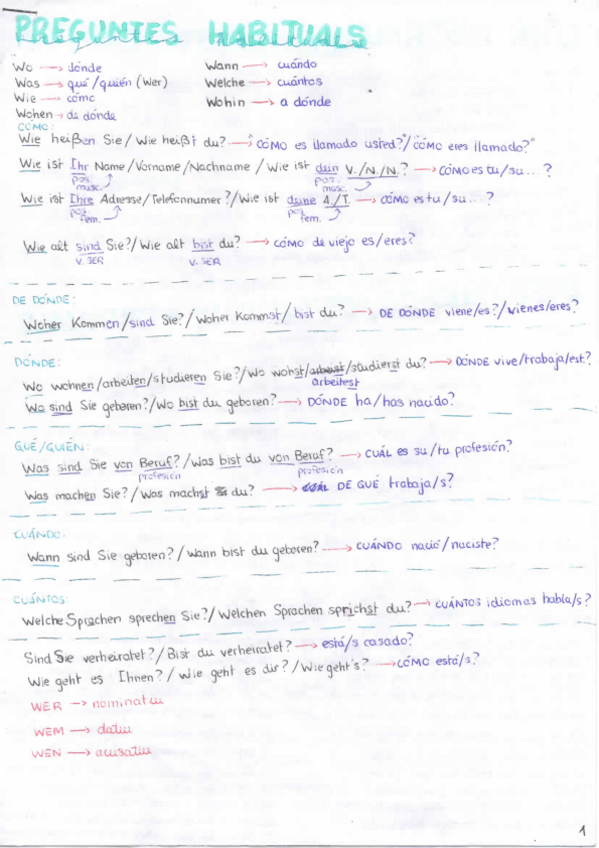 PREGUNTES HABITUALS
Wo → dónde
Was → qué/quién (Wer)
Wie → cómo
Wohen → de dónde
Wann → cuándo
Welche → cuántos
Wohin → a dónde
CÓMO:
Wie heißen Sie/Wie heißt du? → "CÓMO es llamado usted?"/"CÓMO eres llamado?"
Wie ist Ihr Name/Vorname/Nachname / Wie ist dein V./N./N.? → CÓMO es tu/su...?
pos. masc.
pos. masc.
Wie ist Ihre Adresse/Telefonnumer?/Wie ist deine A./T. → CÓMO es tu/su...?
pos. fem.
pos. fem.
Wie alt sind Sie?/Wie alt bist du? → CÓMO de viejo es/eres?
V. SER
V. SER
DE DÓNDE:
Woher Kommen/sind Sie?/Woher Kommst/bist du? → DE DÓNDE viene/es?/vienes/eres?
DÓNDE:
Wo wohnen/arbeiten/studieren Sie?/Wo wohst/arbeist/studierst du? → DÓNDE vive/trabaja/est.?
arbeitest
Wo sind Sie geberen?/Wo bist du geboren? → DÓNDE ha/has nacido?
QUÉ/QUIÉN:
Was sind Sie von Beruf?/Was bist du von Beruf? → CUÁL es su/tu profesión?
profesión
profesión
Was machen Sie?/Was machst du? → DE QUÉ trabaja/s?
CUÁNDO:
Wann sind Sie geboren?/Wann bist du geboren? → CUÁNDO nació/naciste?
CUÁNTOS:
Welche Sprachen sprechen Sie?/Welchen Sprachen sprichst du? → CUÁNTOS idiomas habla/s?
Sind Sie verheiratet?/Bist du verheiratet? → está/s casado?
Wie geht es Ihnen?/Wie geht es dir?/Wie geht's? → CÓMO está/s?
WER → nominatiu
WEM → datiu
WEN → acusatiu
1